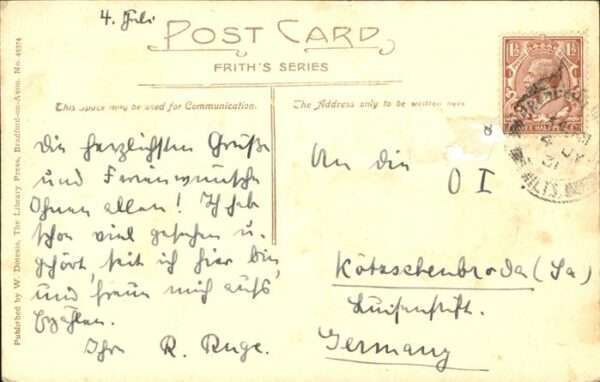 4. Juli
POST CARD
FRITH'S SERIES
This space may be used for Communication.
The Address only to be written here
Die herzlichsten Grüße
und Ferienwünsche
Ihnen allen! Ich habe
schon viel gesehen u.
gehört, seit ich hier bin,
und freue mich aufs
Erzählen.
Ihre R. Ruge.
An die
O I
Kötzschenbroda (Sa)
Luisenstift.
Germany
Published by W. Dotesio, The Library Press, Bradford-on-Avon. No. 45374